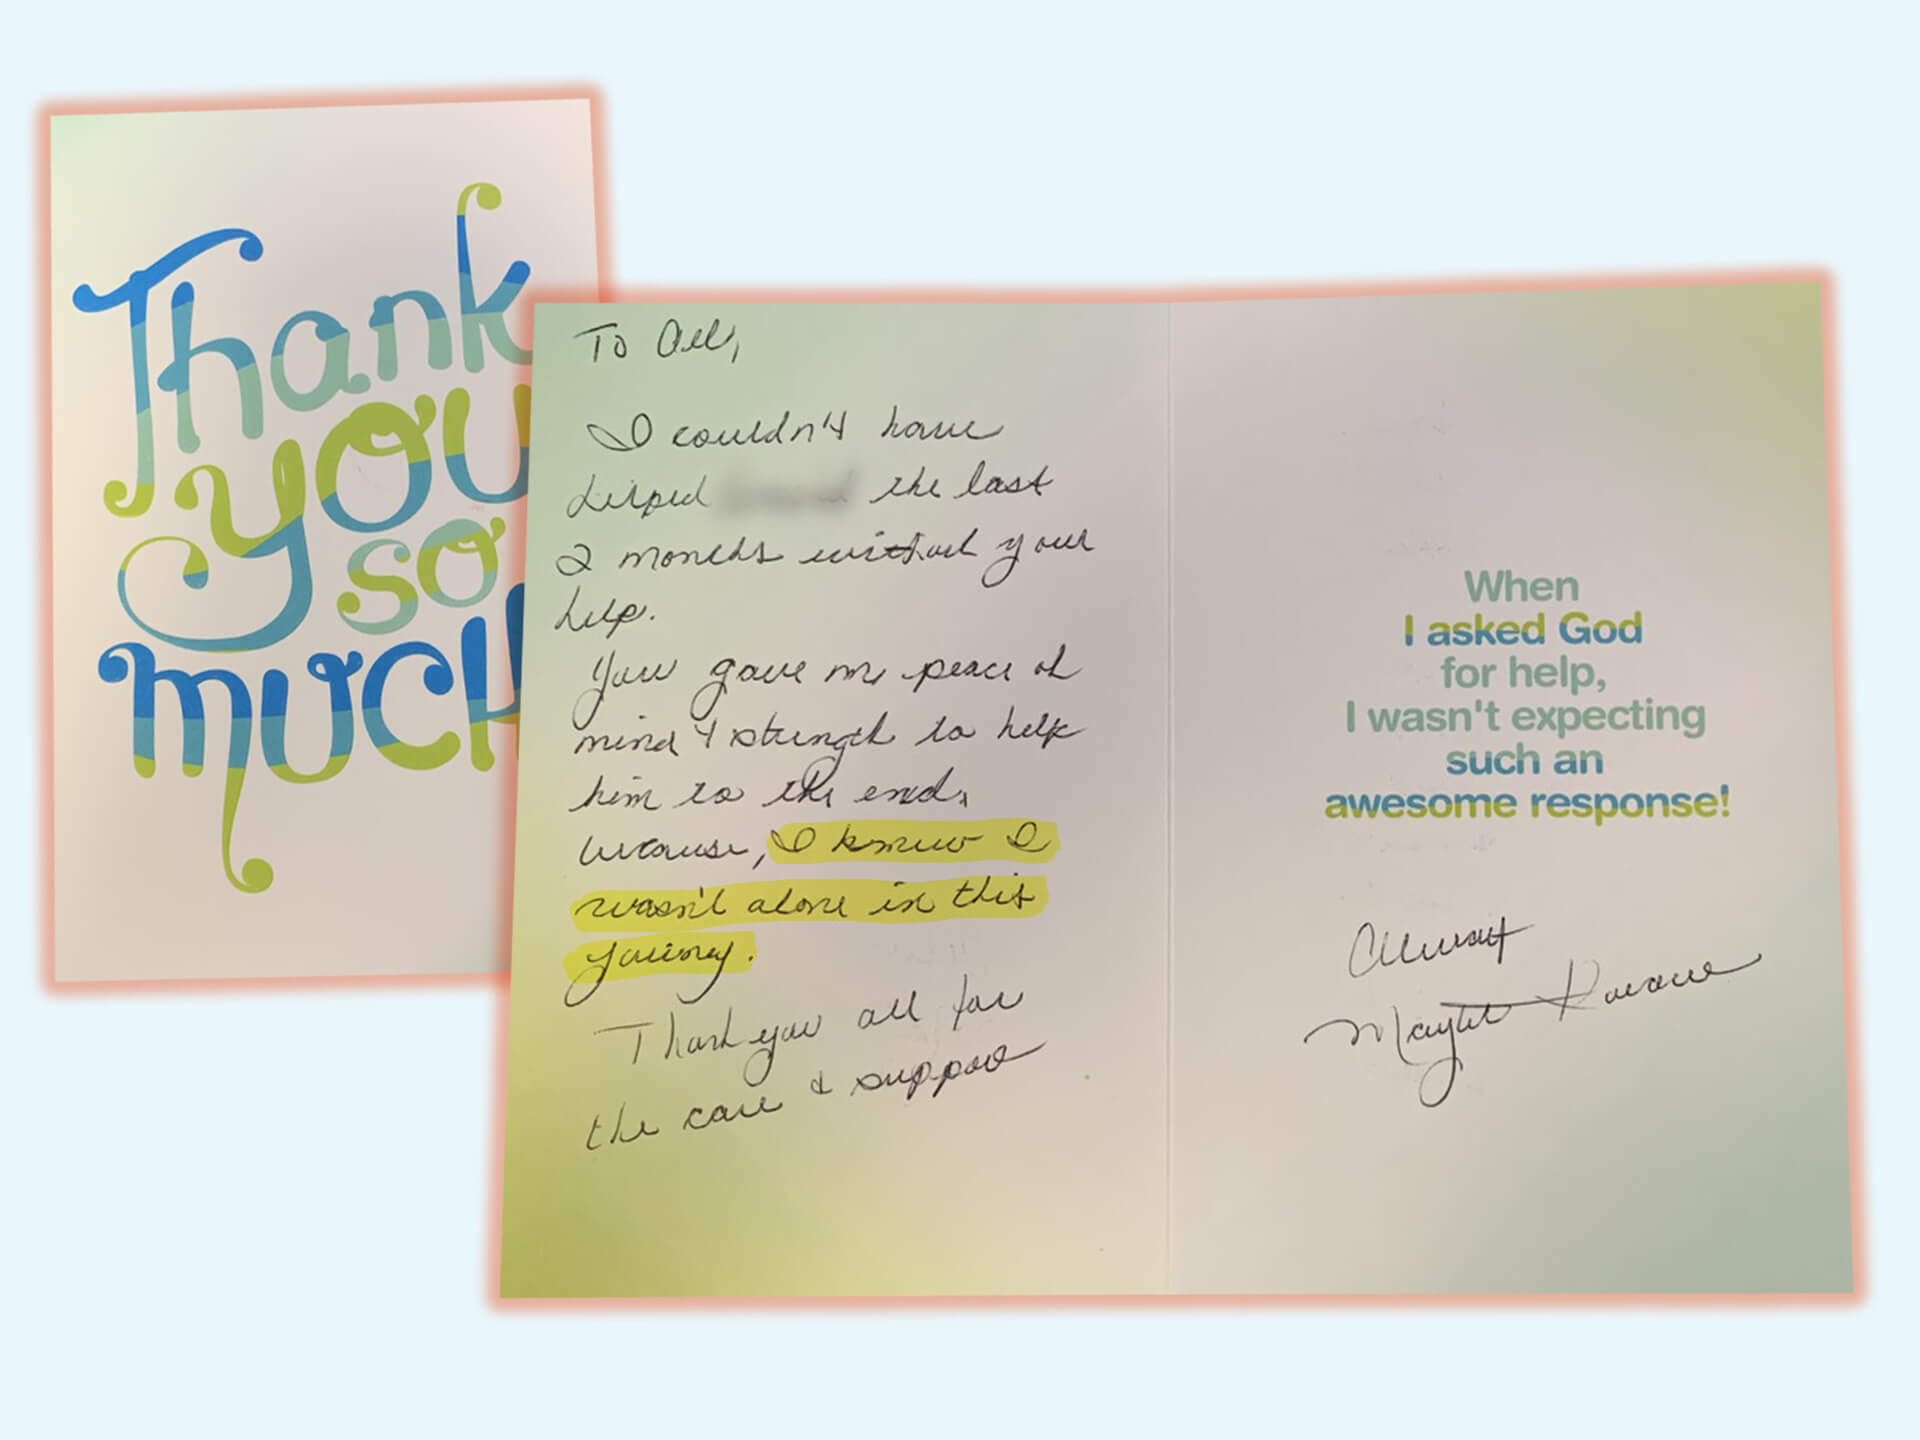 Thank
you
so
much
To All,
I couldn't have
helped the last
2 months without your
help.
You gave me peace of
mind & strength to help
him to the end,
because, I knew I
wasn't alone in this
journey.
Thank you all for
the care & support
When
I asked God
for help,
I wasn't expecting
such an
awesome response!